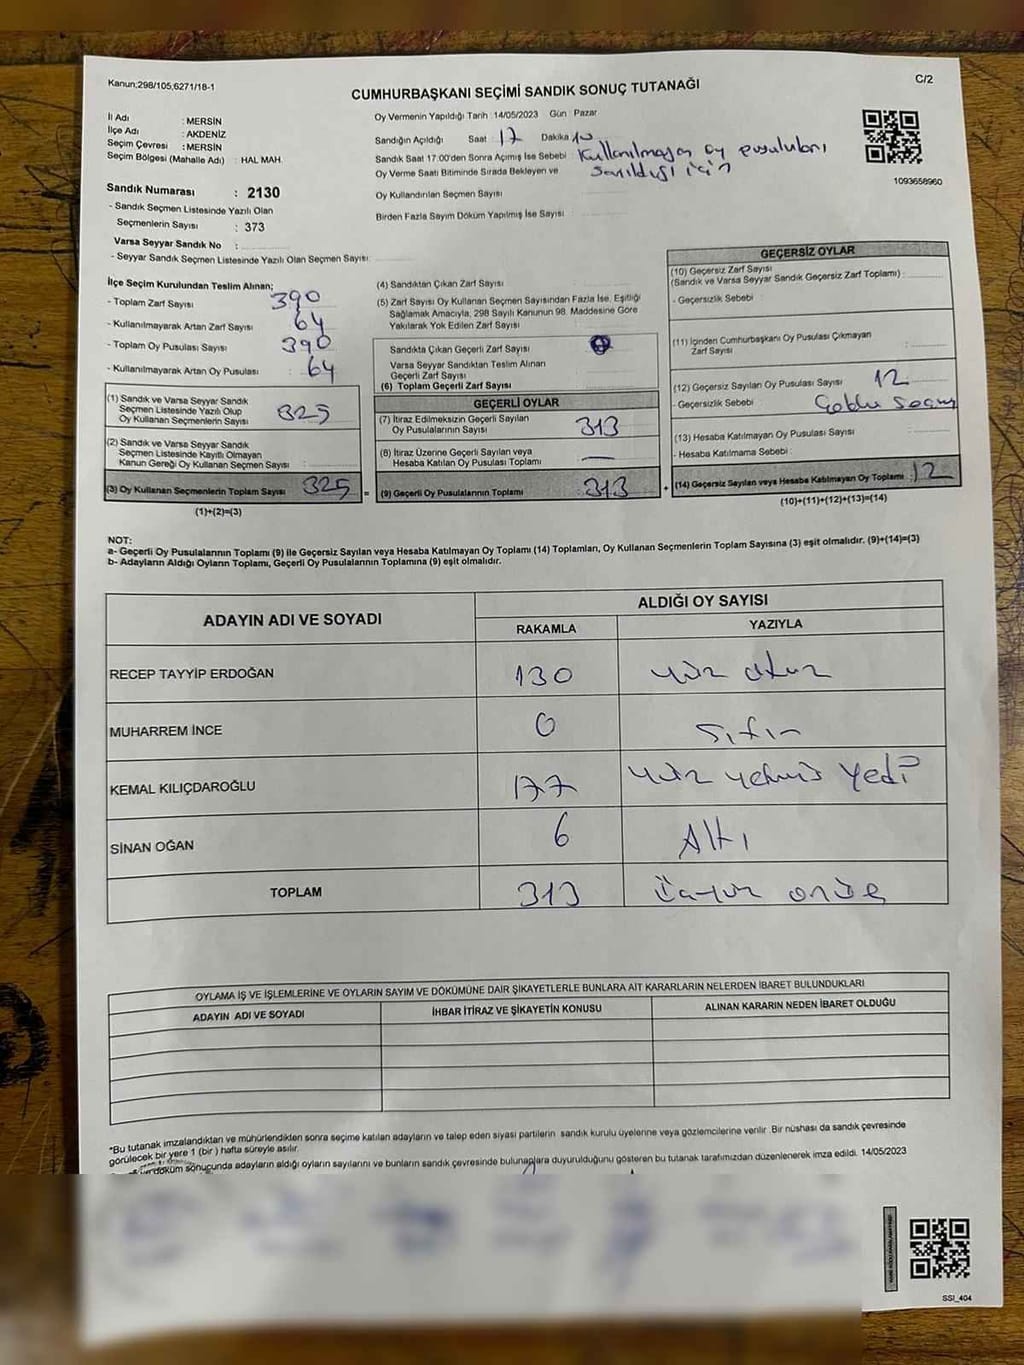 Kanun;298/105;6271/18-1
C/2
CUMHURBAŞKANI SEÇİMİ SANDIK SONUÇ TUTANAĞI
İl Adı : MERSİN
İlçe Adı : AKDENİZ
Seçim Çevresi : MERSİN
Seçim Bölgesi (Mahalle Adı) : HAL MAH.
Sandık Numarası : 2130
- Sandık Seçmen Listesinde Yazılı Olan
Seçmenlerin Sayısı : 373
Varsa Seyyar Sandık No :
- Seyyar Sandık Seçmen Listesinde Yazılı Olan Seçmen Sayısı:
Oy Vermenin Yapıldığı Tarih :14/05/2023 Gün : Pazar
Sandığın Açıldığı Saat : 17 Dakika :10
Sandık Saat 17.00'den Sonra Açımış İse Sebebi Kullanılmayan oy pusuluları
Oy Verme Saati Bitiminde Sırada Bekleyen ve sayıldığı için
Oy Kullandırılan Seçmen Sayısı
Birden Fazla Sayım Döküm Yapılmış İse Sayısı :
1093658960
İlçe Seçim Kurulundan Teslim Alınan;
- Toplam Zarf Sayısı : 390
- Kullanılmayarak Artan Zarf Sayısı : 64
- Toplam Oy Pusulası Sayısı : 390
- Kullanılmayarak Artan Oy Pusulası : 64
(1) Sandık ve Varsa Seyyar Sandık
Seçmen Listesinde Yazılı Olup
Oy Kullanan Seçmenlerin Sayısı : 325
(2) Sandık ve Varsa Seyyar Sandık
Seçmen Listesinde Kayıtlı Olmayan
Kanun Gereği Oy Kullanan Seçmen Sayısı :
(3) Oy Kullanan Seçmenlerin Toplam Sayısı : 325 =
(1)+(2)=(3)
(4) Sandıktan Çıkan Zarf Sayısı :
(5) Zarf Sayısı Oy Kullanan Seçmen Sayısından Fazla İse, Eşitliği
Sağlamak Amacıyla, 298 Sayılı Kanunun 98. Maddesine Göre
Yakılarak Yok Edilen Zarf Sayısı :
Sandıkta Çıkan Geçerli Zarf Sayısı :
Varsa Seyyar Sandıktan Teslim Alınan
Geçerli Zarf Sayısı :
(6) Toplam Geçerli Zarf Sayısı :
GEÇERLİ OYLAR
(7) İtiraz Edilmeksizin Geçerli Sayılan
Oy Pusulalarının Sayısı : 313
(8) İtiraz Üzerine Geçerli Sayılan veya
Hesaba Katılan Oy Pusulası Toplamı : —
(9) Geçerli Oy Pusulalarının Toplamı : 313 +
GEÇERSİZ OYLAR
(10) Geçersiz Zarf Sayısı
(Sandık ve Varsa Seyyar Sandık Geçersiz Zarf Toplamı) :
- Geçersizlik Sebebi :
(11) İçinden Cumhurbaşkanı Oy Pusulası Çıkmayan
Zarf Sayısı :
(12) Geçersiz Sayılan Oy Pusulası Sayısı : 12
- Geçersizlik Sebebi :
(13) Hesaba Katılmayan Oy Pusulası Sayısı :
- Hesaba Katılmama Sebebi :
(14) Geçersiz Sayılan veya Hesaba Katılmayan Oy Toplamı : 12
(10)+(11)+(12)+(13)=(14)
NOT:
a- Geçerli Oy Pusulalarının Toplamı (9) ile Geçersiz Sayılan veya Hesaba Katılmayan Oy Toplamı (14) Toplamları, Oy Kullanan Seçmenlerin Toplam Sayısına (3) eşit olmalıdır. (9)+(14)=(3)
b- Adayların Aldığı Oyların Toplamı, Geçerli Oy Pusulalarının Toplamına (9) eşit olmalıdır.
ADAYIN ADI VE SOYADI
ALDIĞI OY SAYISI
RAKAMLA YAZIYLA
RECEP TAYYİP ERDOĞAN 130 yüz otuz
MUHARREM İNCE 0 sıfır
KEMAL KILIÇDAROĞLU 177 yüz yetmiş yedi
SİNAN OĞAN 6 Altı
TOPLAM 313 üçyüz onüç
OYLAMA İŞ VE İŞLEMLERİNE VE OYLARIN SAYIM VE DÖKÜMÜNE DAİR ŞİKAYETLERLE BUNLARA AİT KARARLARIN NELERDEN İBARET BULUNDUKLARI
ADAYIN ADI VE SOYADI İHBAR İTİRAZ VE ŞİKAYETİN KONUSU ALINAN KARARIN NEDEN İBARET OLDUĞU
*Bu tutanak imzalandıktan ve mühürlendikten sonra seçime katılan adayların ve talep eden siyasi partilerin sandık kurulu üyelerine veya gözlemcilerine verilir. Bir nüshası da sandık çevresinde
görülecek bir yere 1 (bir ) hafta süreyle asılır.
döküm sonuçunda adayların aldığı oyların sayılarını ve bunların sandık çevresinde bulunanlara duyurulduğunu gösteren bu tutanak tarafımızdan düzenlenerek imza edildi. 14/05/2023
SSI_404